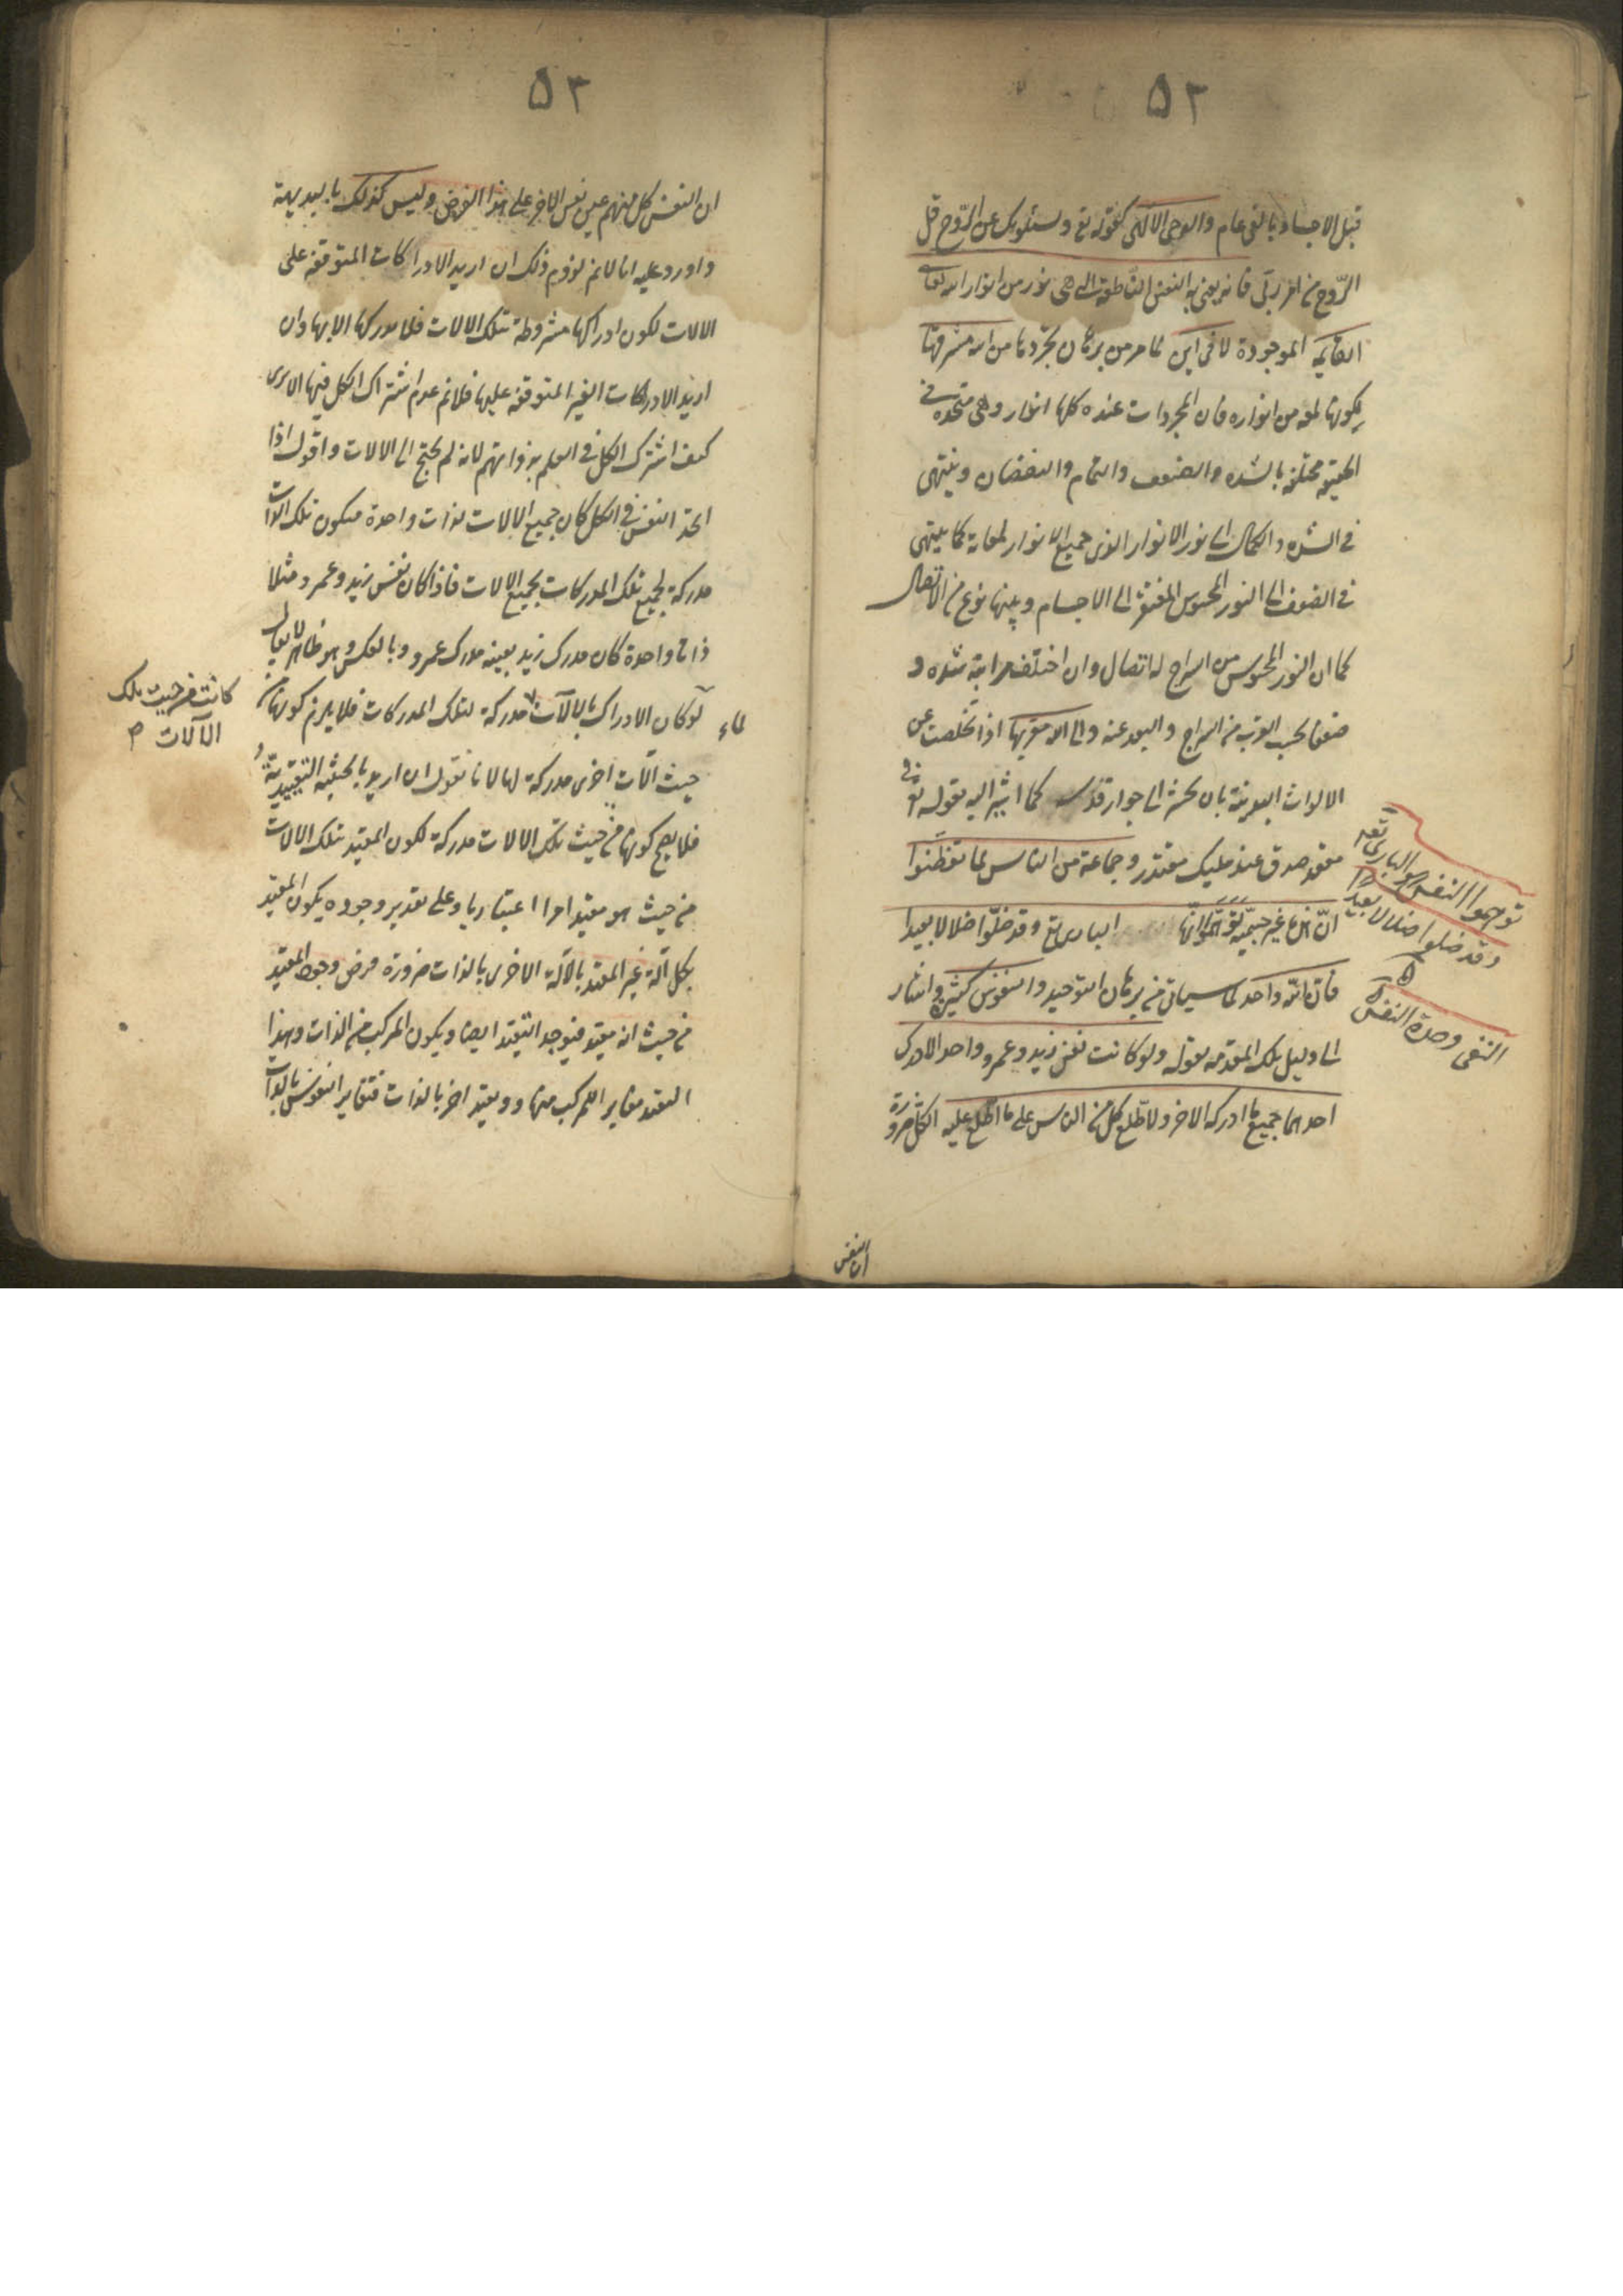 ٥٢
قبل الاجساد بالفى عام والوحى الالهى كقوله تع ويسئلونك عن الرّوح قل
الرّوح من امر ربّى فانه يعنى به النفس النّاطقة التى هى نور من انوار الله تعالى
القايمة الموجودة لا فى اين لما مر من برهان تجردها من الله مشرقها
لكونها لمعة من انواره فان المجردات عنده كلها انوار وهى متحدة فى
الحقيقة مختلفة بالشده والضعف والتمام والنقصان وينتهى
فى الشده والكمال الى نور الانوار الذى جميع الانوار لمعاته كما ينتهى
فى الضعف الى النور المحسوس المفتقر الى الاجسام وبينها نوع من الاتصال
كما ان النور المحسوس من السراج له اتصال وان اختلف مراتبه شده و
ضعفا بحسب القرب من السراج والبعد عنه والى الله مغربها اذا تخلصت عن
الالواث البدنية بان تحشر الى جوار قدسه كما اشير اليه بقوله تع فى
مقعد صدق عند مليك مقتدر وجماعة من الناس لما تفطّنوا
انّ هذه غير جسميّة توهّموا انّها البارى تع وقد ضلّوا ضلالا بعيدا
فانّ الله واحد لما سياتى من برهان التوحيد والنفوس كثيرة واشار
الى دليل تلك المقدمه بقوله ولو كانت نفس زيد وعمرو واحد الادرك
احدهما جميع ما ادركه الاخر ولاطّلع كل من الناس على ما اطّلع عليه الكل ضرورة
توهموا النفس البارى تعه
وقد ضلوا ضلالا بعيدا
النفى وحدة النفس
ان النفس
٥٣
ان النفس كل منهم عين نفس الاخر على هذا الفرض وليس كذلك بالبديهة
واورد عليه انا لانم لزوم ذلك ان اريد الادراكات المتوقفة على
الالات لكون ادراكها مشروطة بتلك الالات فلا مدركها الا بها وان
اريد الادراكات الغير المتوقفة عليها فلانم عدم اشتراك الكل فيها الا يرى
كيف اشترك الكل فى العلم بذواتهم لما لم يحتج الى الالات واقول اذا
اتحد النفس فى الكل كان جميع الالات لذات واحدة فيكون تلك الذات
مدركة لجميع تلك المدركات بجميع الالات فاذا كان نفس زيد وعمرو مثلا
ذاتا واحدة كان مدرك زيد بعينه مدرك عمرو وبالعكس وهو ظاهر لا يقال
لو كان الادراك بالآلات مدركة لتلك المدركات فلا يلزم كونها من
كانت من حيث تلك
الآلات ص
حيث آلات اخرى مدركة لها لانا نقول ان اريد بالحيثية التقييدية
فلا يصح كونها من حيث تلك الالات مدركة لكون المقيد بتلك الالات
من حيث هو مقيد امرا اعتباريا وعلى تقدير وجوده يكون المقيد
بكل آلة غير المقيد بالآلة الاخرى بالذات ضرورة فرض وجود المقيد
من حيث انه مقيد فيوجد التقيد ايضا ويكون المركب من الذات وهذا
التقيد مغاير المركب منها وتقيد اخر بالذات فتغاير النفوس بالذات